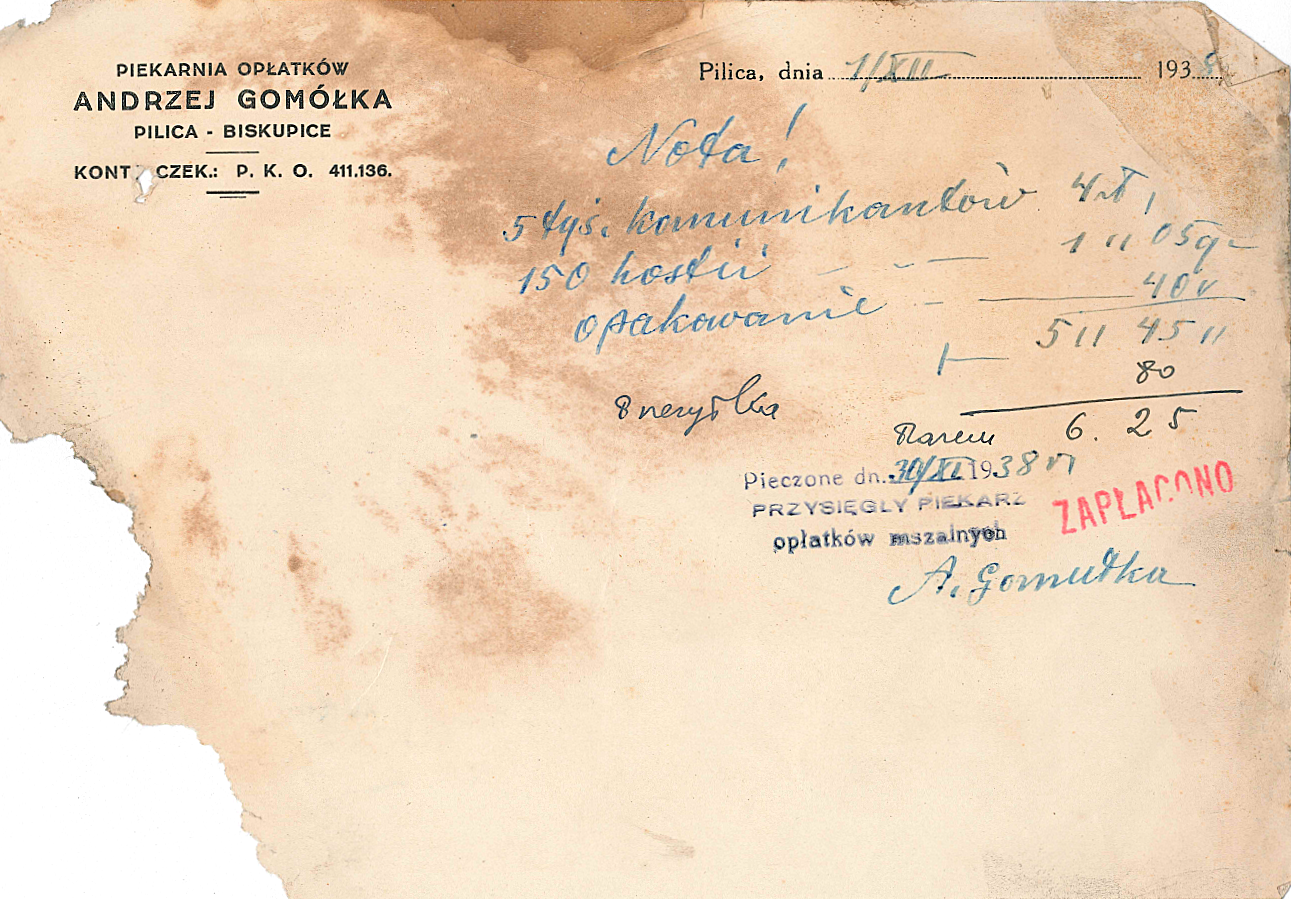 PIEKARNIA OPŁATKÓW
ANDRZEJ GOMÓŁKA
PILICA - BISKUPICE
KONT CZEK.: P. K. O. 411.136.
Pilica, dnia 1/XII 1938
Nota!
5 tyś. komunikantów 4 zł,
150 hostii — — — 1 " 05 gr
opakowanie — — 40 "
5 " 45 "
Przesyłka 80
Razem 6. 25
Pieczone dn. 30/XI 1938 r
PRZYSIĘGŁY PIEKARZ
opłatków mszalnych
ZAPŁACONO
A. Gomułka